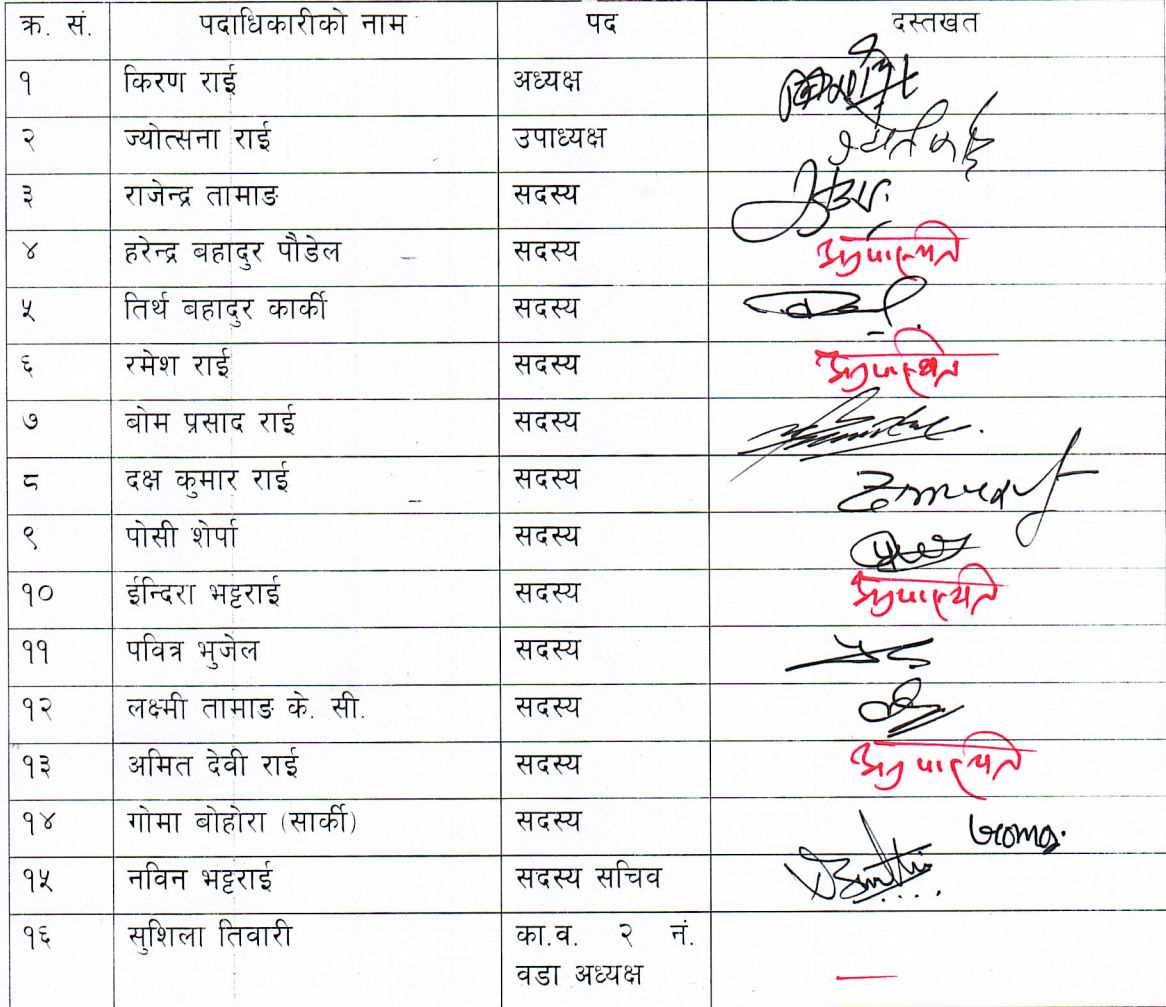 क्र. सं. पदाधिकारीको नाम पद दस्तखत
१ किरण राई अध्यक्ष
२ ज्योत्सना राई उपाध्यक्ष
३ राजेन्द्र तामाङ सदस्य
४ हरेन्द्र बहादुर पौडेल सदस्य अनुपस्थित
५ तिर्थ बहादुर कार्की सदस्य
६ रमेश राई सदस्य अनुपस्थित
७ बोम प्रसाद राई सदस्य
८ दक्ष कुमार राई सदस्य
९ पोसी शेर्पा सदस्य
१० ईन्दिरा भट्टराई सदस्य अनुपस्थित
११ पवित्र भुजेल सदस्य
१२ लक्ष्मी तामाङ के. सी. सदस्य
१३ अमित देवी राई सदस्य अनुपस्थित
१४ गोमा बोहोरा (सार्की) सदस्य Goma.
१५ नविन भट्टराई सदस्य सचिव
१६ सुशिला तिवारी का.व. २ नं.
वडा अध्यक्ष